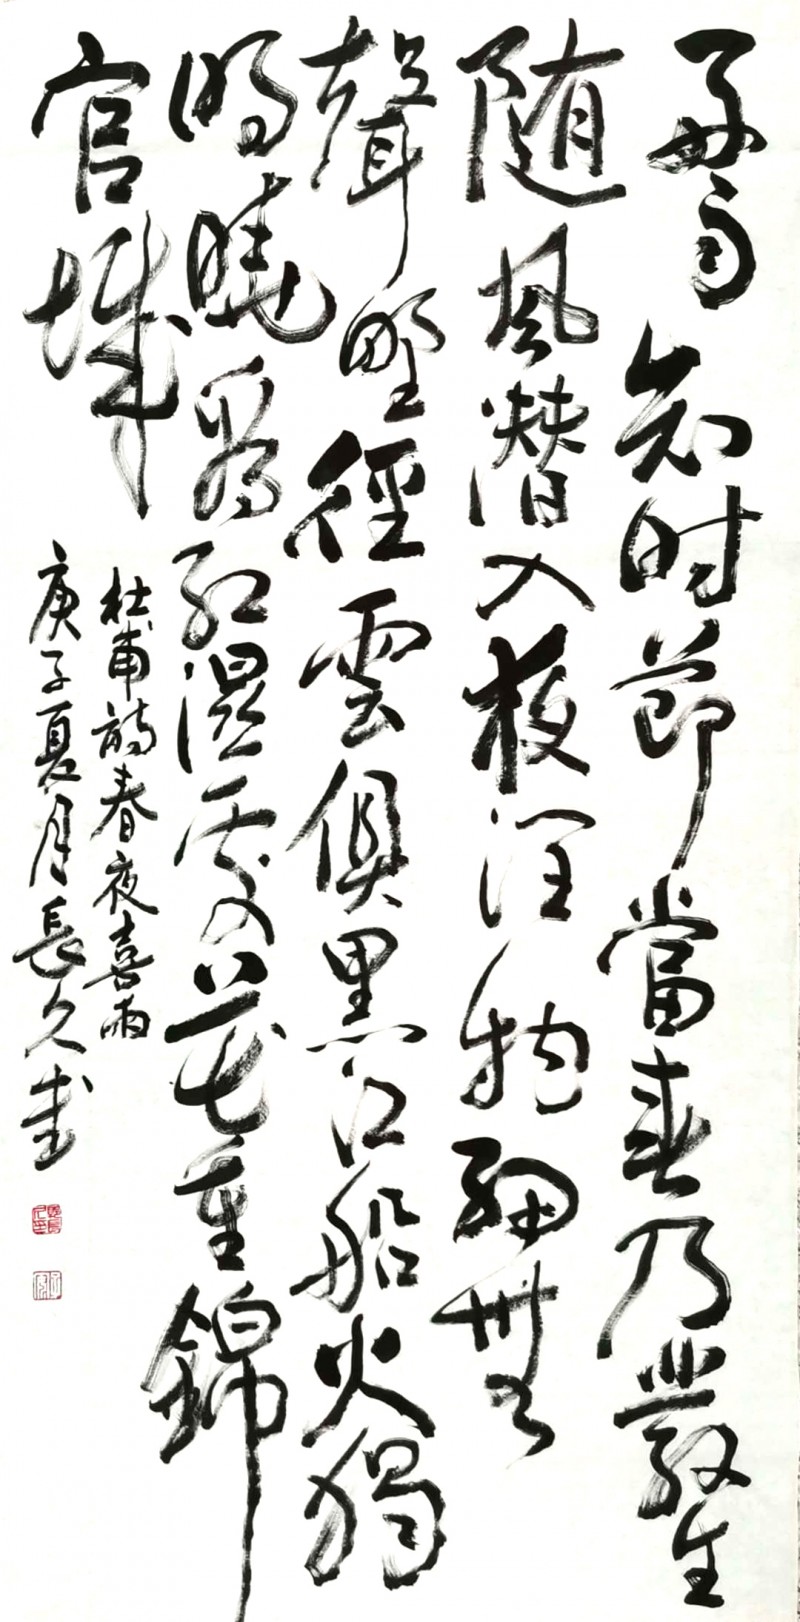 好雨知时節當春乃發生
随風潜入夜润物細無
聲野徑雲俱黑江船火獨
明曉看红湿處花重錦
官城
杜甫詩春夜喜雨
庚子夏月長久書